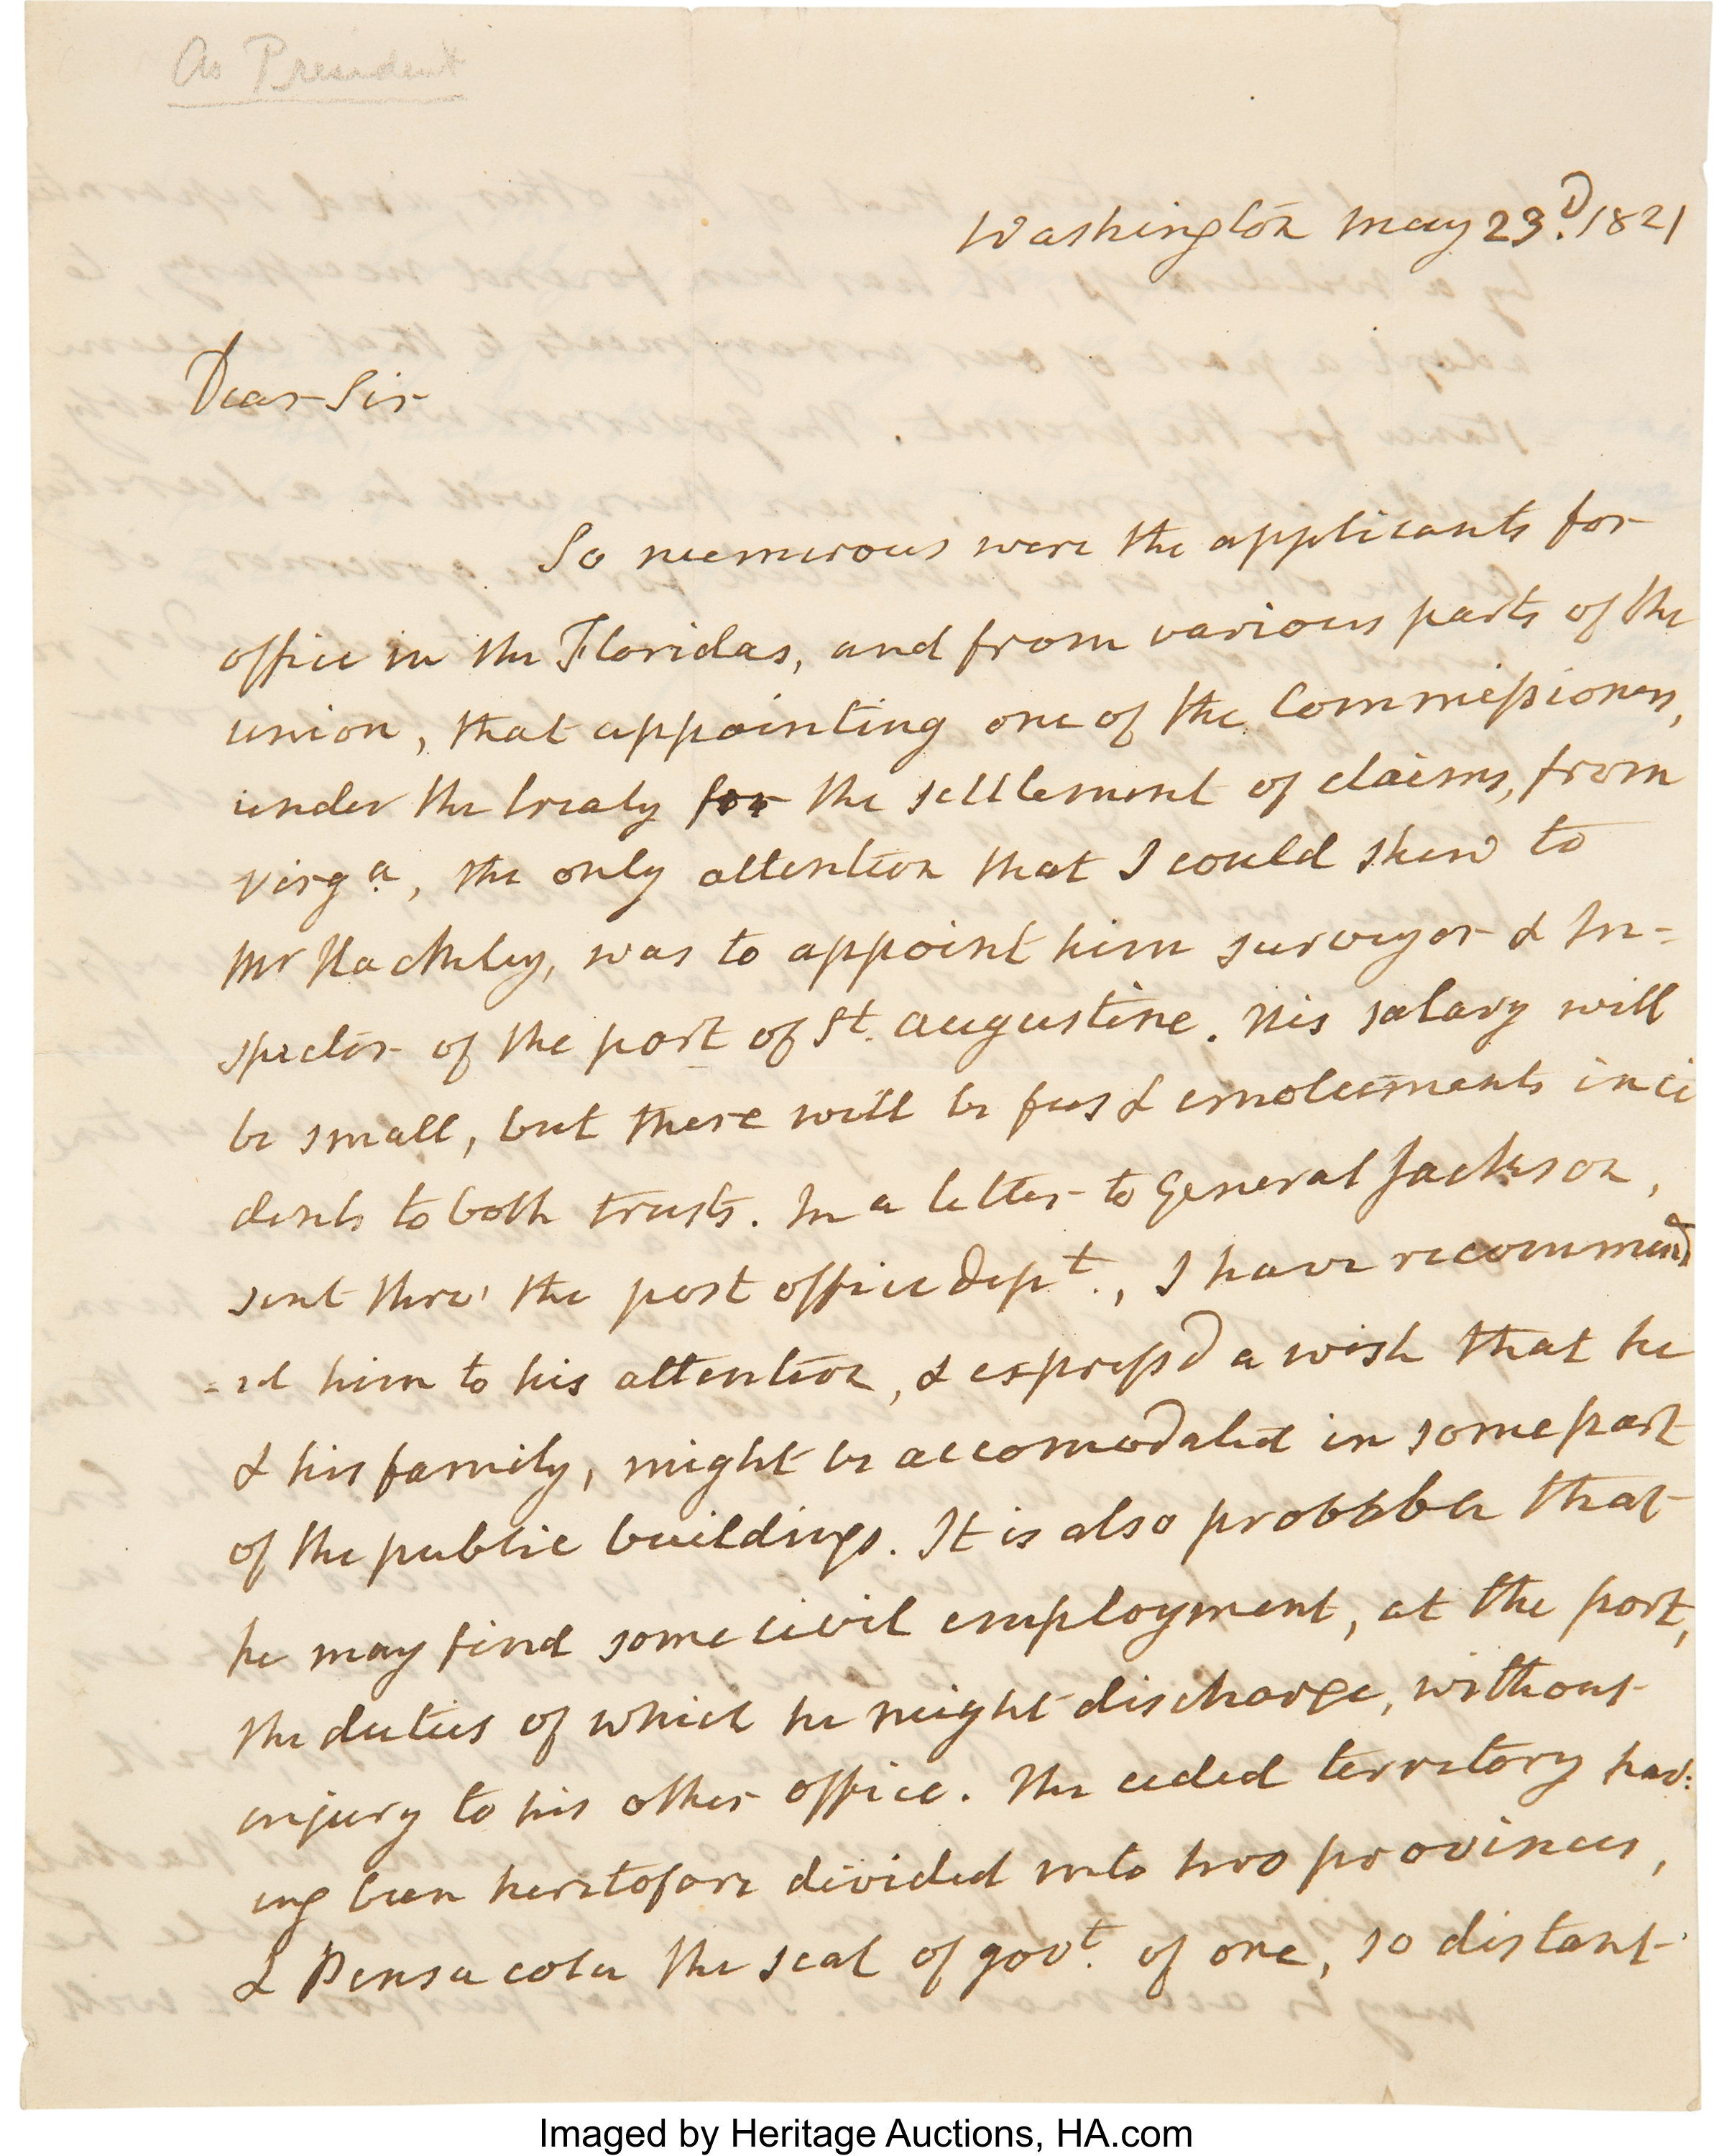 As President
Washington May 23.D 1821
Dear Sir
So numerous were the applicants for
office in the Floridas, and from various parts of the
union, that appointing one of the Commissioners,
under the treaty for the settlement of claims, from
Virga, the only attention that I could shew to
Mr Hackley, was to appoint him surveyor & In-
spector of the port of St. Augustine. His salary will
be small, but there will be fees & emoluments inci
dents to both trusts. In a letter to General Jackson,
sent thro' the post office dept., I have recommend
-ed him to his attention, & express'd a wish that he
& his family, might be accomodated in some part
of the public buildings. It is also probable that
he may find some civil employment, at the port,
the duties of which he might discharge, without
injury to his other office. The ceded territory hav:
ing been heretofore divided into two provinces,
& Pensacola the seat of govt. of one, so distant
Imaged by Heritage Auctions, HA.com